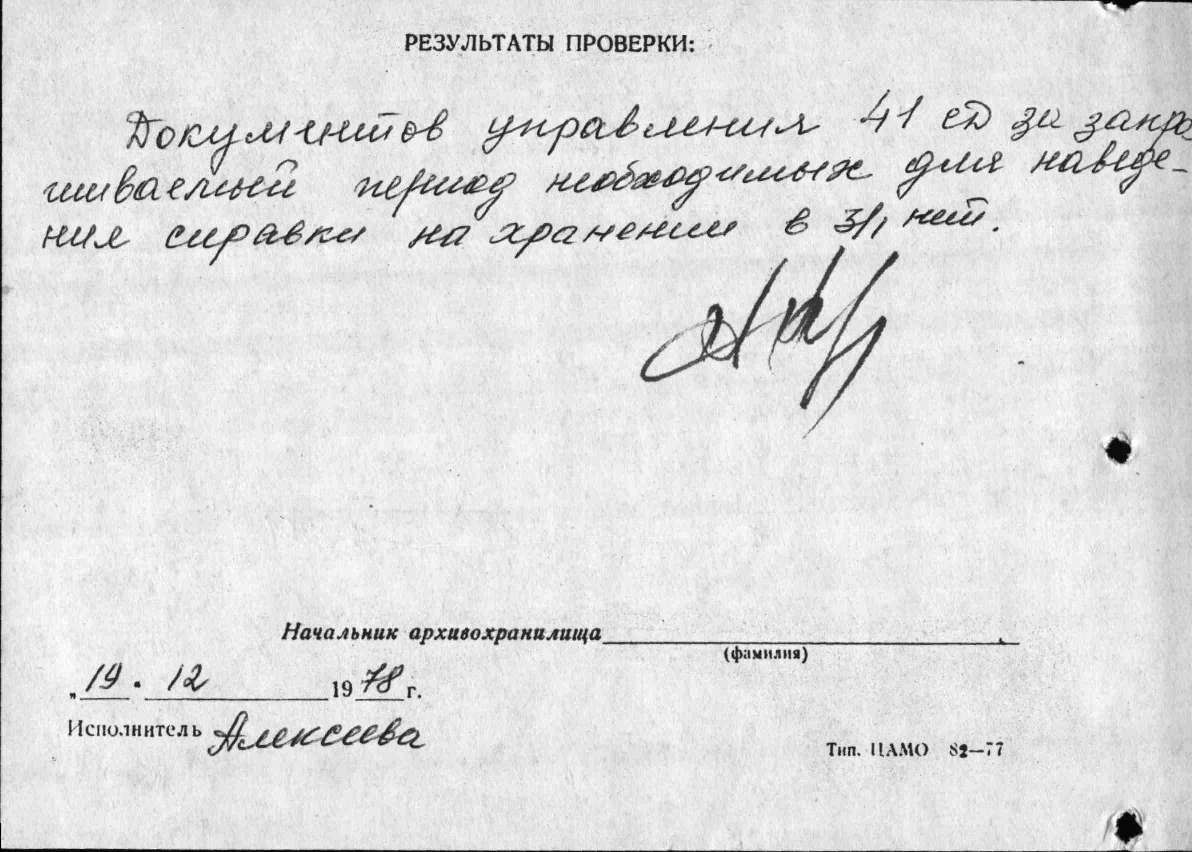 РЕЗУЛЬТАТЫ ПРОВЕРКИ:
Документов управления 41 сд за запра
шиваемый период необходимых для наведе-
ния справки на хранении в 3/1 нет.
Начальник архивохранилища
(фамилия)
„19" 12 1978 г.
Исполнитель Алексеева
Тип. ЦАМО 82—77